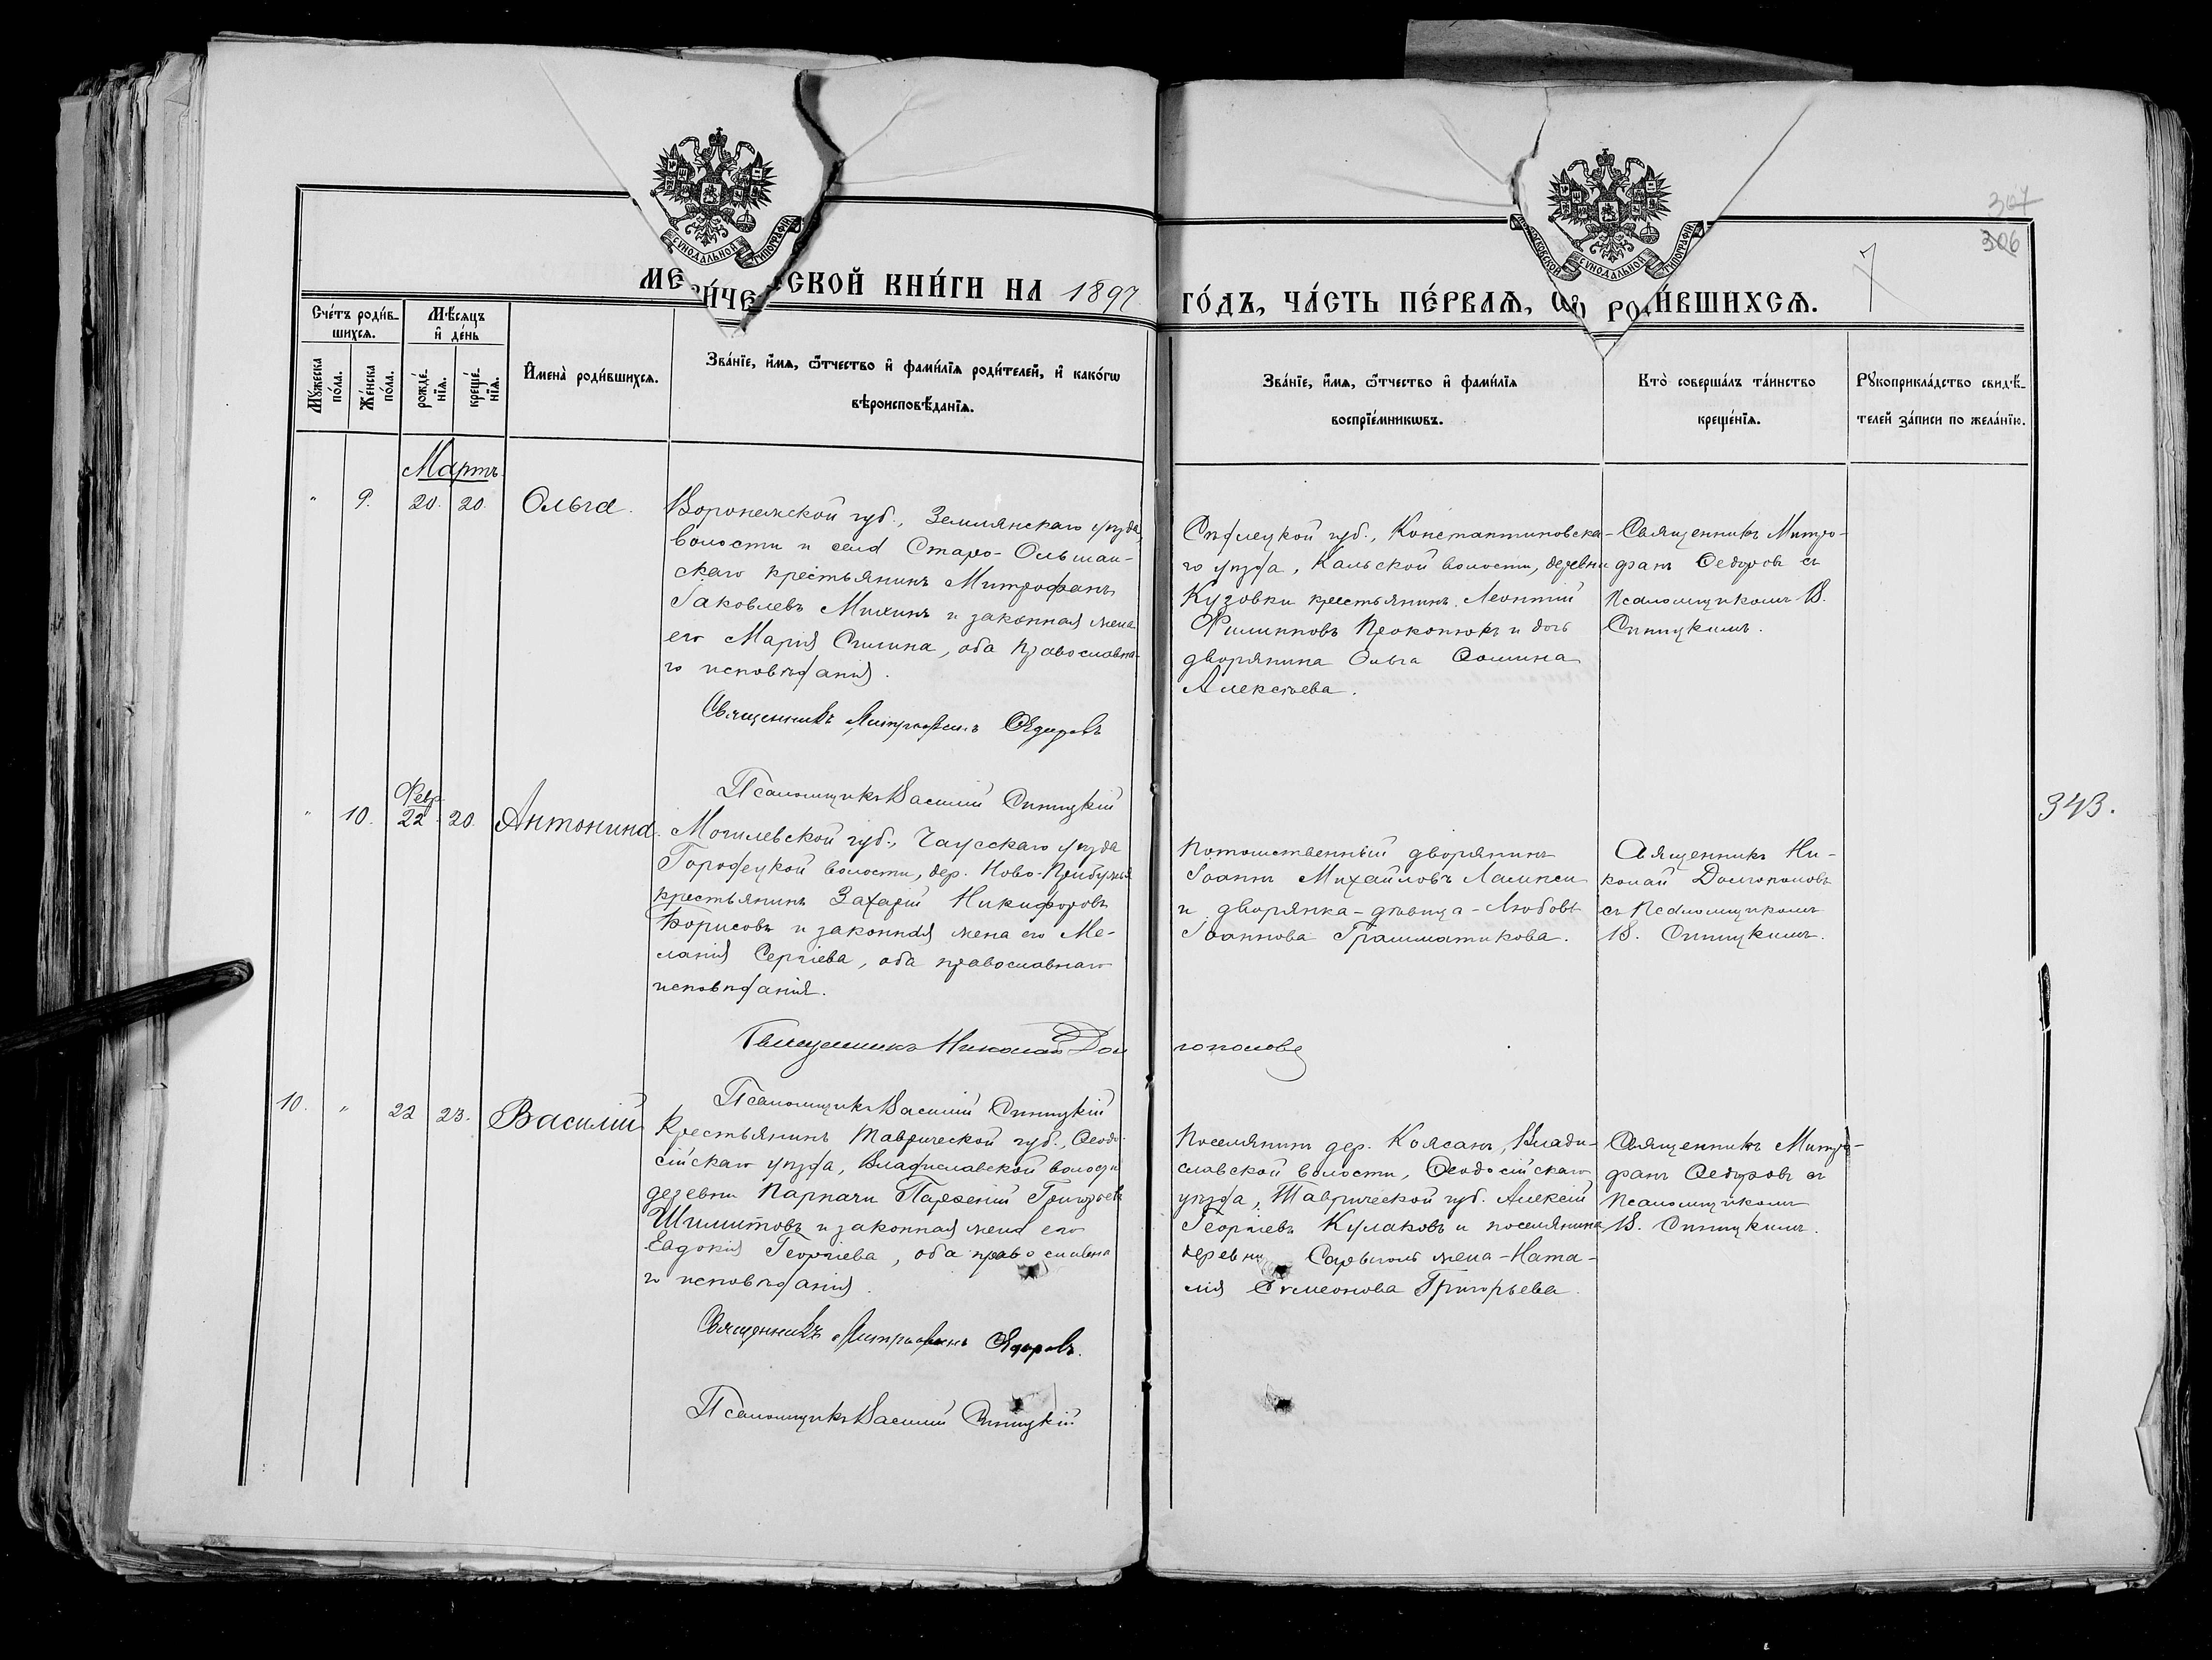 367
306
7
СУНОДАЛЬНОЙ ТИПОГРАФІИ
МОСКОВСКОЙ СУНОДАЛЬНОЙ ТИПОГРАФІИ
МЕ РИ́ЧЕ СКОЙ КНИ́ГИ НА 1897 ГО́ДЪ, ЧА́СТЬ ПЕ́РВАѦ, Ѽ РОДИ́ВШИХСѦ.
Сче́тъ роди́вшихсѧ.
Мѣ́сѧцъ и҆ де́нь
Мꙋ́жеска по́ла.
Же́нска по́ла.
рожде́нїѧ.
креще́нїѧ.
И҆мена̀ роди́вшихсѧ.
Зва́нїе, и҆́мѧ, ѻ҆́тчество и҆ фами́лїѧ роди́телей, и҆ како́гѡ
вѣроисповѣ́данїѧ.
Зва́нїе, и҆́мѧ, ѻ҆́тчество и҆ фами́лїѧ
воспрїе́мникѡвъ.
Кто̀ соверша́лъ та́инство
креще́нїѧ.
Рꙋкоприкла́дство свидѣ́-
телей за́писи по жела́нїю.
Мартъ
" 9. 20. 20. Ольга.
Воронежской губ., Землянскаго уѣзда,
волости и села Старо-Ольшан-
скаго крестьянинъ Митрофанъ
Іаковлевъ Михинъ и законная жена
его Марія, оба православна-
го исповѣданія.
Священникъ Митрофанъ Ѳедоровъ
Псаломщикъ Василій Синицкій
Сѣдлецкой губ., Константиновска-
го уѣзда, Кальской волости, деревни
Кузовки крестьянинъ Леонтій
Филипповъ Прокопюкъ и дочь
дворянина Ольга Ѳомина
Алексѣева.
Священникъ Митро-
фанъ Ѳедоровъ съ
Псаломщикомъ В.
Синицкимъ.
" 10. Февр. 22 20. Антонина.
Могилевской губ., Чаусскаго уѣзда
Городецкой волости, дер. Ново-Прибужья
крестьянинъ Захарій Никифоровъ
Борисовъ и законная жена его Ме-
ланія Сергіева, оба православнаго
исповѣданія.
Священникъ Николай Долгополовъ
Псаломщикъ Василій Синицкій
Потомственный дворянинъ
Іоаннъ Михайловъ
и дворянка-дѣвица-Любовь
Іоаннова Грамматикова.
Священникъ Ни-
колай Долгополовъ
съ Псаломщикомъ
В. Синицкимъ.
343.
10. " 22 23. Василій
Крестьянинъ Таврической губ., Ѳеодо-
сійскаго уѣзда, Владиславской волости
деревни Парпачи Парѳеній Григорьевъ
Шилитовъ и законная жена его
Евдокія Георгіева, оба православна
го исповѣданія.
Священникъ Митрофанъ Ѳедоровъ.
Псаломщикъ Василій Синицкій
Поселянинъ дер. Коясанъ, Влади-
славской волости, Ѳеодосійскаго
уѣзда, Таврической губ. Алексій
Георгіевъ Кулаковъ и поселянина
деревни жена-Ната-
лія Симеонова Григорьева.
Священникъ Митро-
фанъ Ѳедоровъ съ
Псаломщикомъ
В. Синицкимъ.